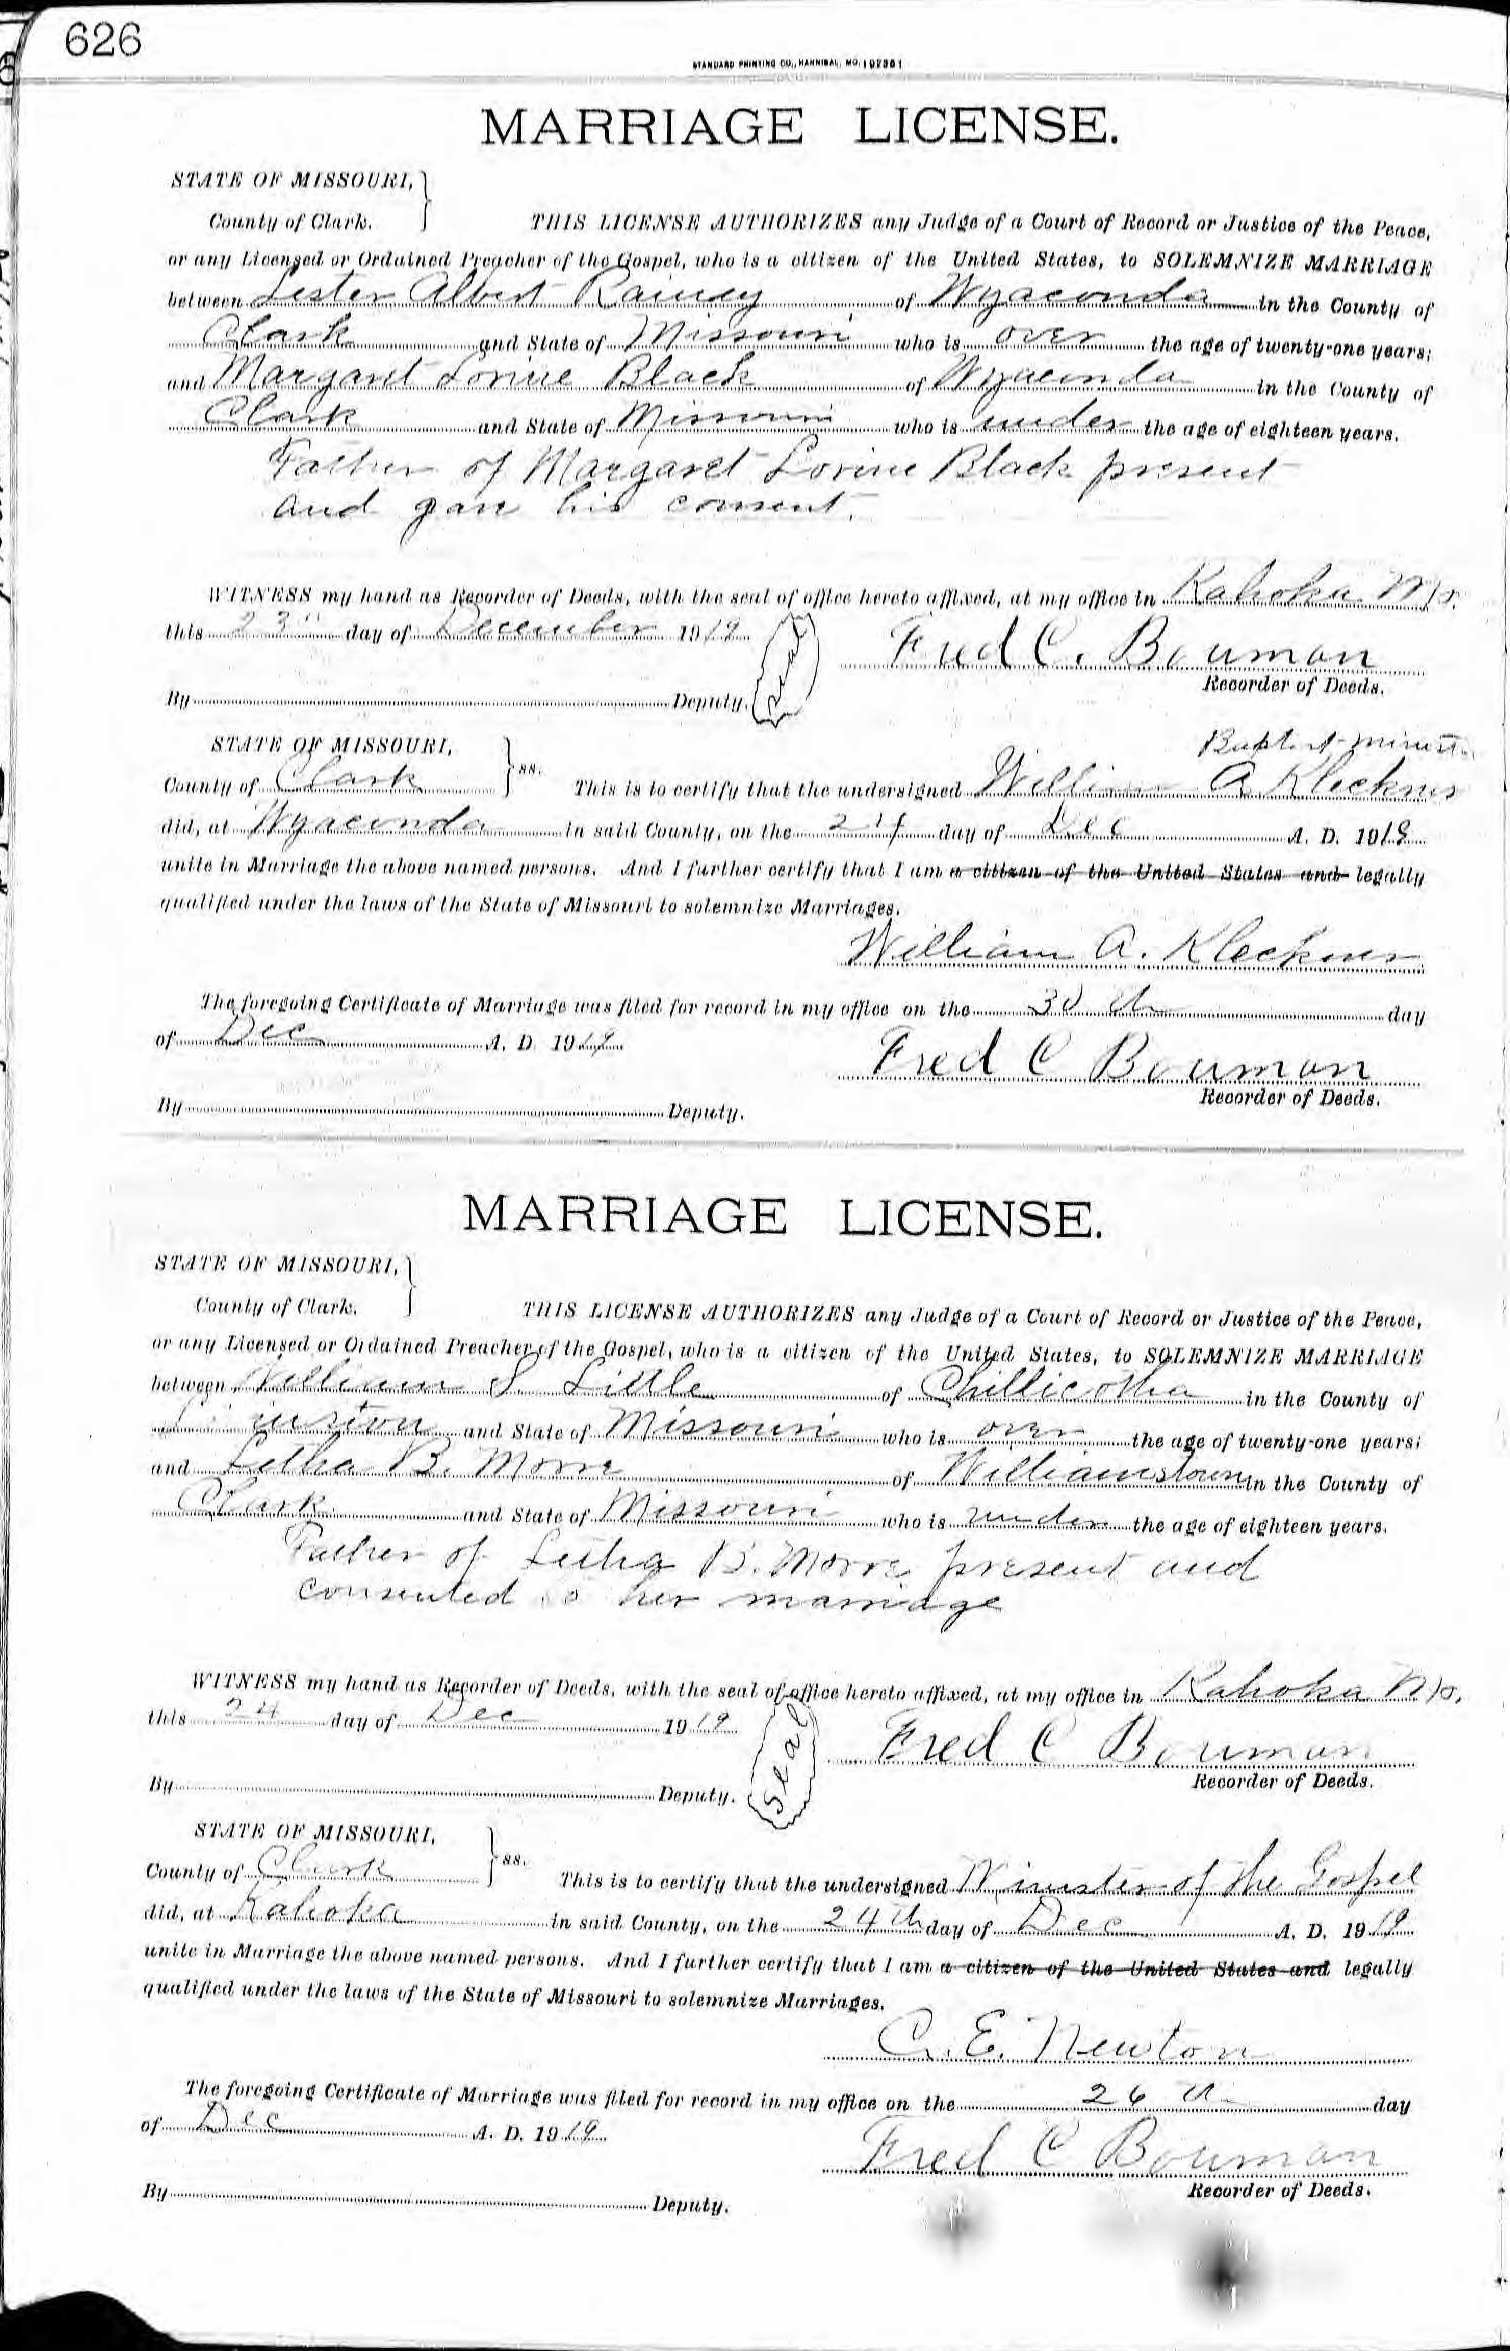 626
STANDARD PRINTING CO., HANNIBAL, MO.
MARRIAGE LICENSE.
STATE OF MISSOURI,
County of Clark.
THIS LICENSE AUTHORIZES any Judge of a Court of Record or Justice of the Peace,
or any Licensed or Ordained Preacher of the Gospel, who is a citizen of the United States, to SOLEMNIZE MARRIAGE
between Lester Albert Rainey of Wyaconda in the County of
Clark and State of Missouri who is over the age of twenty-one years;
and Margaret Lorine Black of Wyaconda in the County of
Clark and State of Missouri who is under the age of eighteen years.
Father of Margaret Lorine Black present
and gave his consent.
WITNESS my hand as Recorder of Deeds, with the seal of office hereto affixed, at my office in Kahoka Mo.
this 23" day of December 1919
Seal
Fred C. Bouman
Recorder of Deeds.
By Deputy.
STATE OF MISSOURI,
Baptist minister
County of Clark ss. This is to certify that the undersigned William A Kleckner
did, at Wyaconda in said County, on the 24 day of Dec A. D. 1919
unite in Marriage the above named persons. And I further certify that I am a citizen of the United States and legally
qualified under the laws of the State of Missouri to solemnize Marriages.
William A. Kleckner
The foregoing Certificate of Marriage was filed for record in my office on the 30th day
of Dec A. D. 1919
Fred C Bouman
Recorder of Deeds.
By Deputy.
MARRIAGE LICENSE.
STATE OF MISSOURI,
County of Clark.
THIS LICENSE AUTHORIZES any Judge of a Court of Record or Justice of the Peace,
or any Licensed or Ordained Preacher of the Gospel, who is a citizen of the United States, to SOLEMNIZE MARRIAGE
between William S. Little of Chillicotha in the County of
and State of Missouri who is over the age of twenty-one years;
and Letha B. Morre of Williamstown in the County of
Clark and State of Missouri who is under the age of eighteen years.
Father of Letha B. Morre present and
consented to her marriage
WITNESS my hand as Recorder of Deeds, with the seal of office hereto affixed, at my office in Kahoka Mo.
this 24 day of Dec 1919
Seal
Fred C Bouman
Recorder of Deeds.
By Deputy.
STATE OF MISSOURI,
County of Clark ss. This is to certify that the undersigned Minister of the Gospel
did, at Kahoka in said County, on the 24th day of Dec A. D. 1919
unite in Marriage the above named persons. And I further certify that I am a citizen of the United States and legally
qualified under the laws of the State of Missouri to solemnize Marriages.
C. E. Newton
The foregoing Certificate of Marriage was filed for record in my office on the 26th day
of Dec A. D. 1919
Fred C Bouman
Recorder of Deeds.
By Deputy.